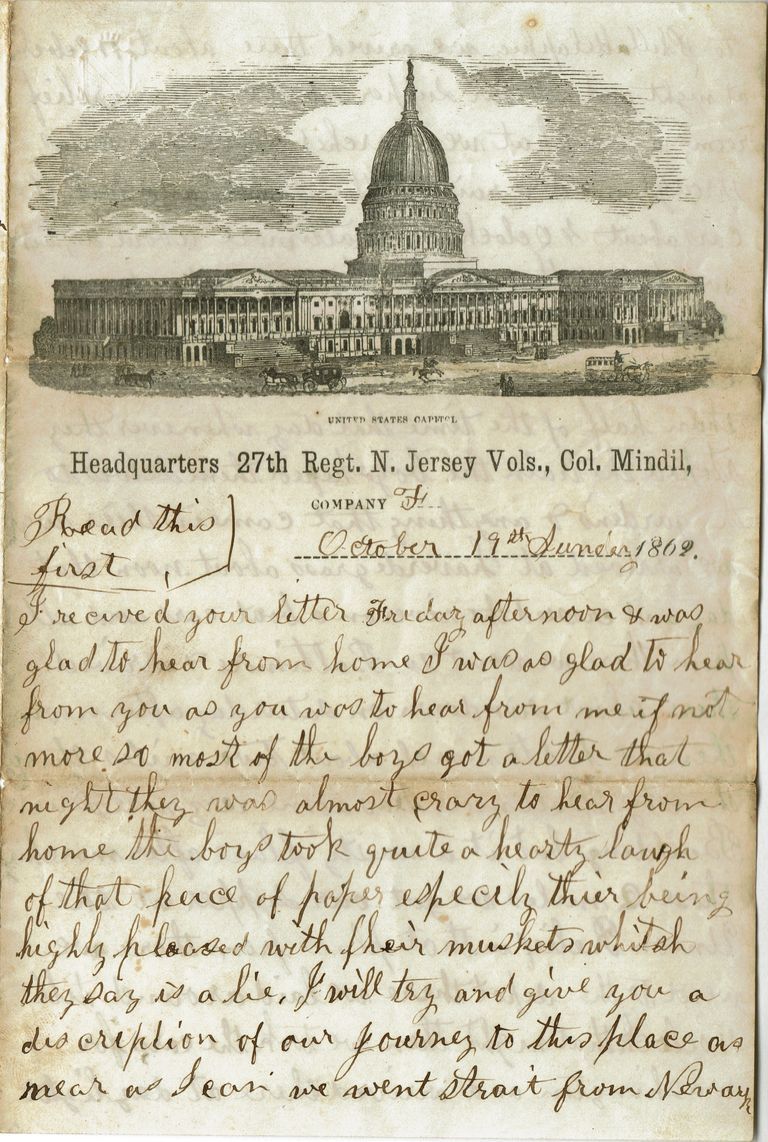 UNITED STATES CAPITOL
Headquarters 27th Regt. N. Jersey Vols., Col. Mindil,
COMPANY F
Read this
first
October 19th Sunday 1862.
I recived your letter Friday afternoon & was
glad to hear from home I was as glad to hear
from you as you was to hear from me if not
more so most of the boys got a letter that
night they was almost crazy to hear from
home the boys took quite a hearty laugh
of that peice of paper especily thier being
highly pleased with their muskets whitsh
they say is a lie. I will try and give you a
discription of our Journey to this place as
near as I can we went strait from Newark